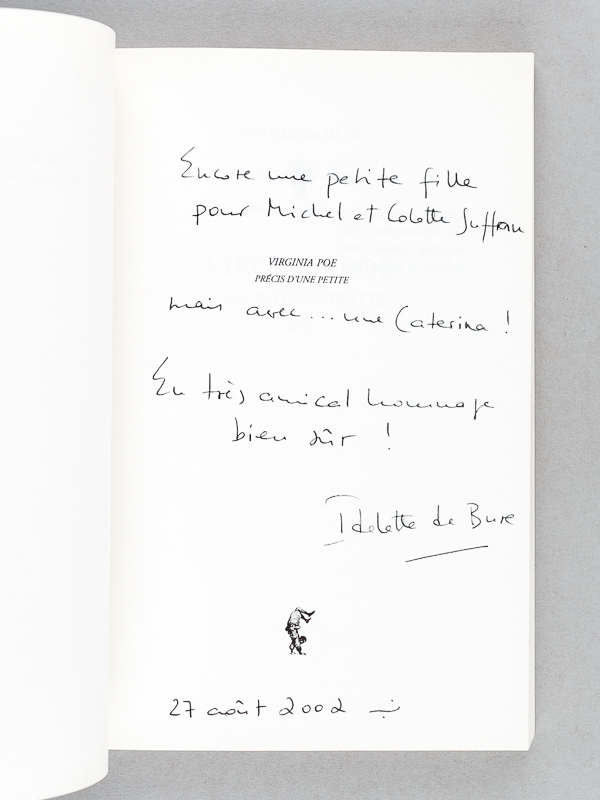 Encore une petite fille
pour Michel et Colette Suffran
VIRGINIA POE
PRÉCIS D'UNE PETITE
mais avec... une Caterina !
En très amical hommage
bien sûr !
Idelette de Bure
27 août 2002